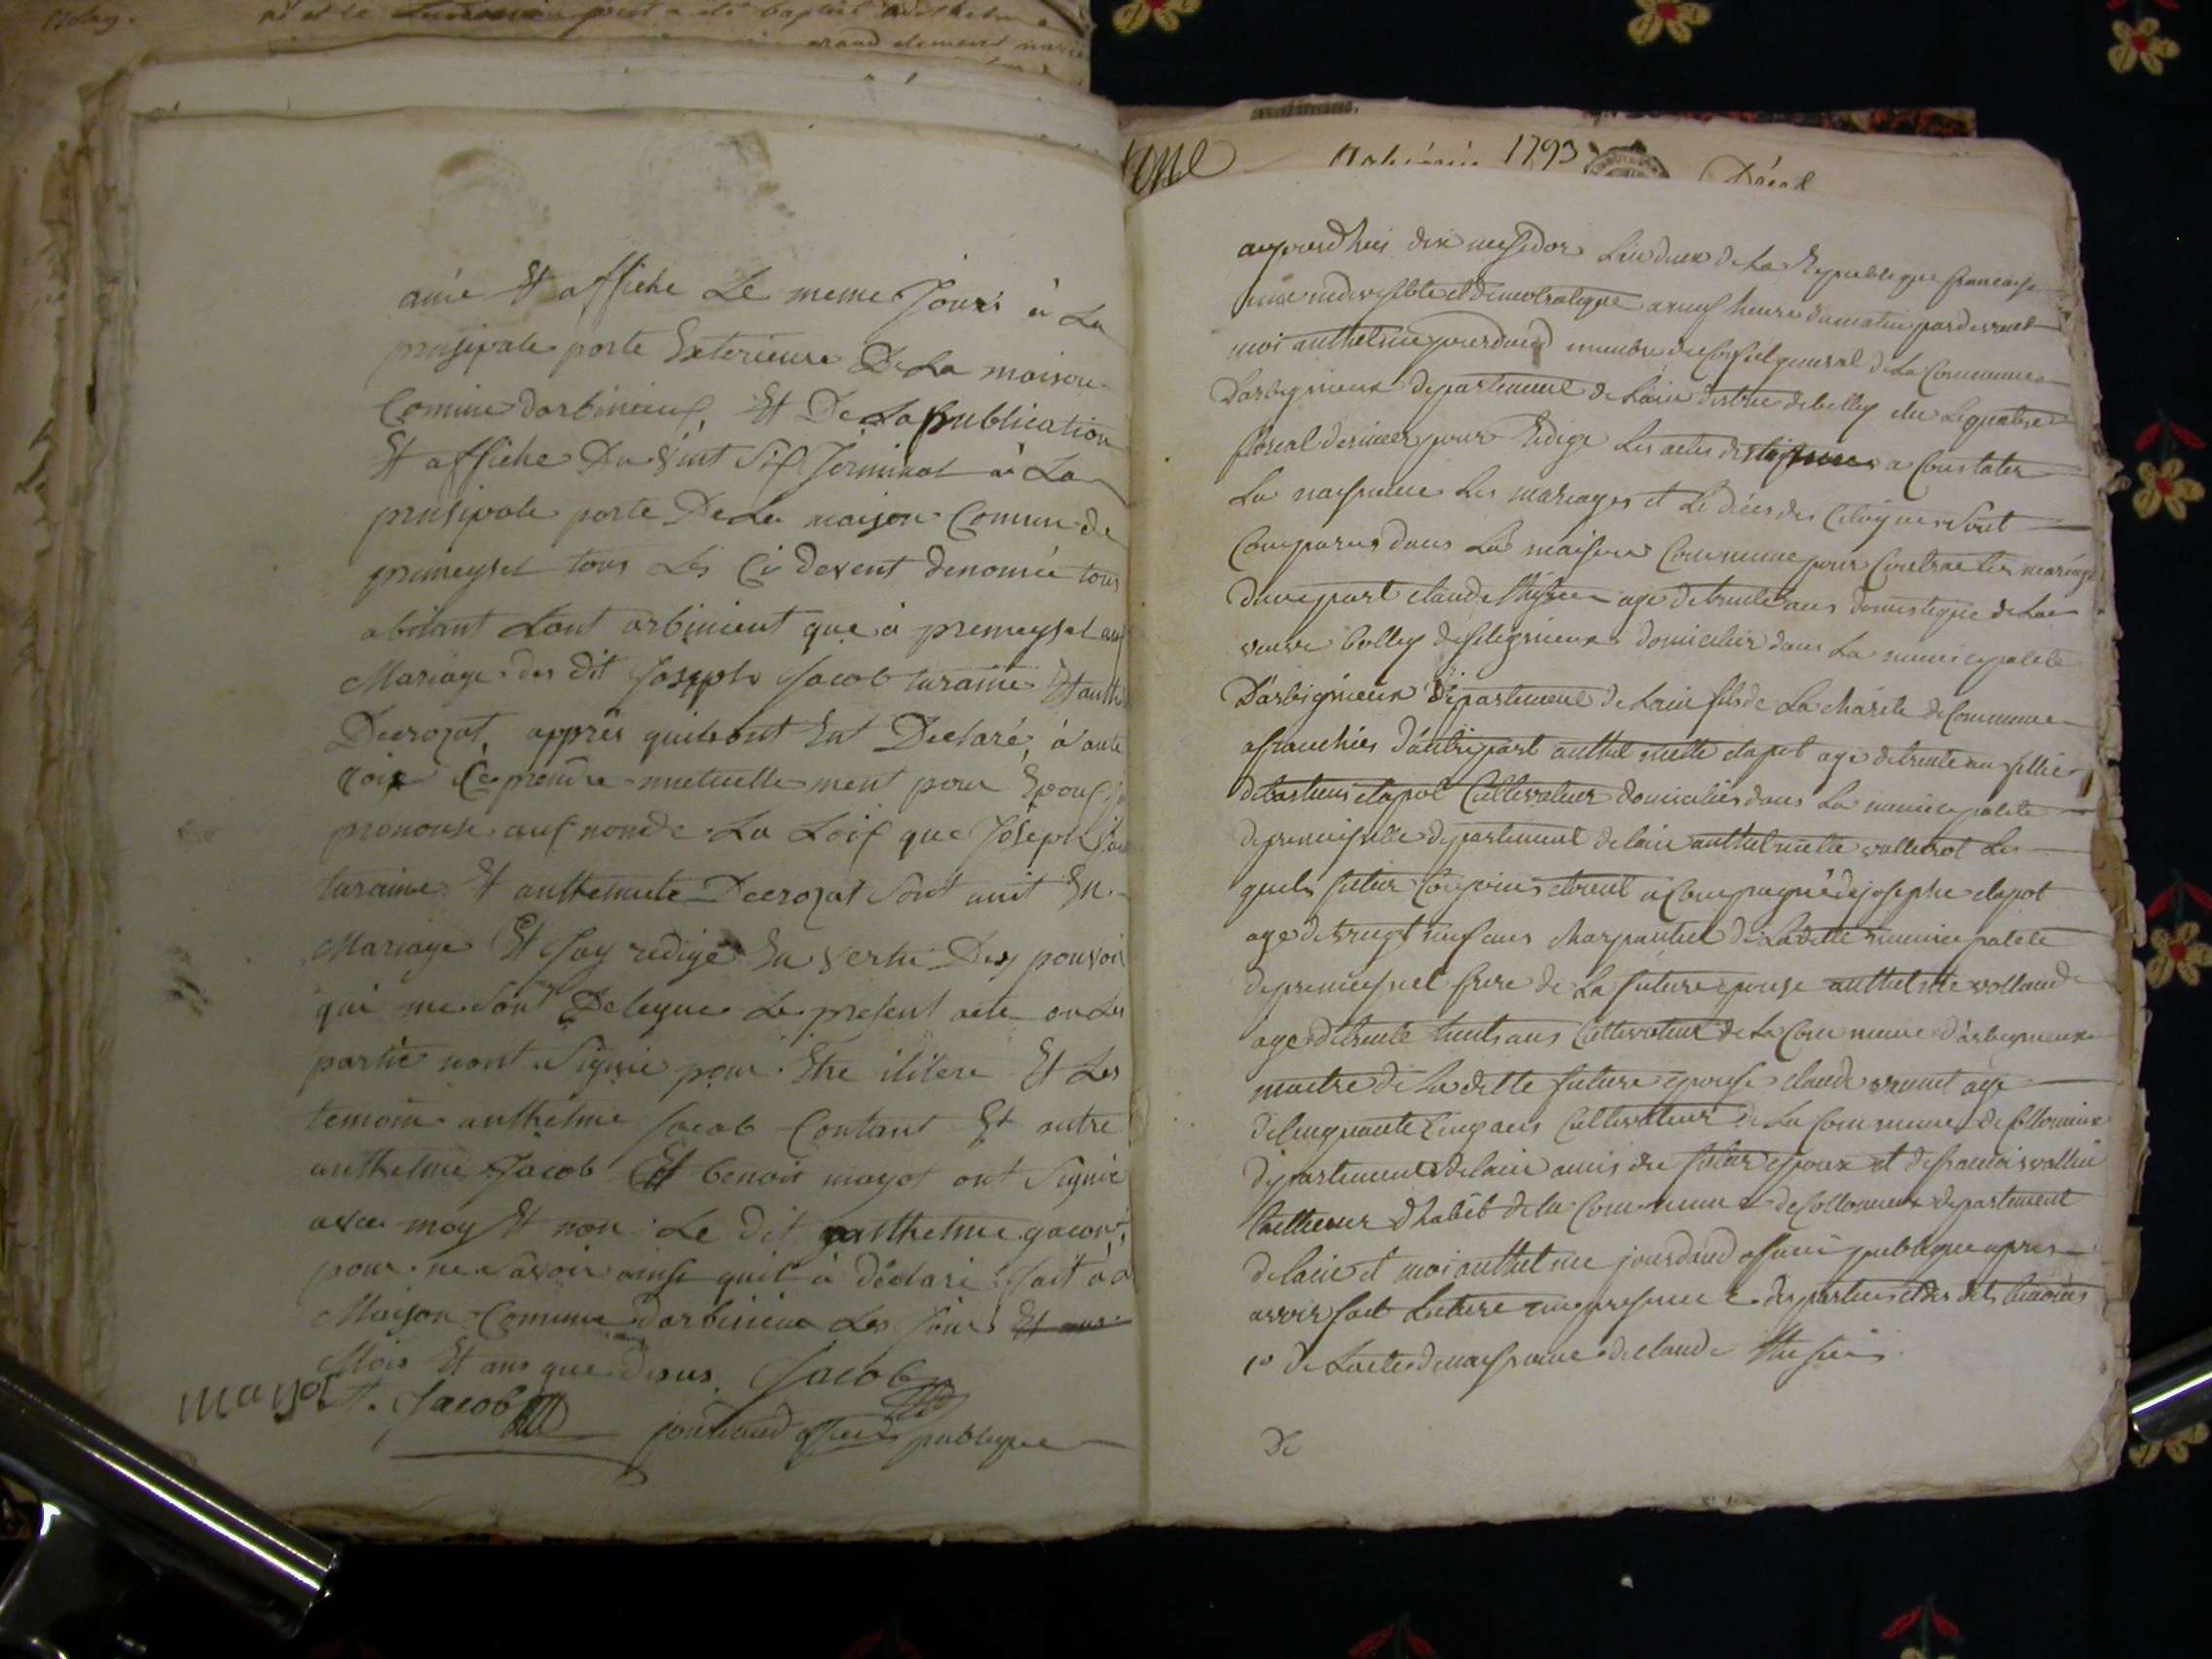 grand clement
année Et affiche Le meme Jours à La
prinsipale porte Exterieure De La maison
Comune darbinieux Et De La publication
Et affiche Du vint Six Jerminal à La
prinsipale porte De La maison Comune de
premeysel tous Les Ci devent denomée tous
abitant tant arbinieut que à premeysel
Mariage des dit Joseph Jacob turaine Et
Decrozat, apprès quils ont Déclaré, à aute
voix Ce prendre mutuelle ment pour
prononse auf nom de La Loix que Joseph
turaine Et anthelmete Decrozat Sont unit En
Mariage Et Jay redigé En vertu Des pouvoir
qui me Sont Delegue Le present acte ou Les
partie nont Signie pour Etre ilitere Et Les
temoin anthelme Jacob Contant Et autre
anthelme Jacob Et benoit mayot ont Signie
avec moy Et non Le dit anthelme gacon
pour ne Savoir ainsi quil à déclaré fait à
Maison Comune darbinieu Les Jours Et ans
Mois Et ans que desus Jacob
mayot A. Jacob
jourdand officier publique
1793
Décal
aujourdhuis dix messidor Lan deux de La Republique francaise
une indivisible et democratique a neuf heure du matin par devant
moi anthelme jourdand membre du Conseil general de La Commune
Darbignieux departement de Lain distric de belley elu Le quatre
floreal dernier pour Rediger Les actes destines a Constater
La naissance Les mariages et Le déces des Citoyens Sont
Comparus dans La maison Commune pour Contracter mariage
dune part claude age de trente ans domestique de La
veuve bolley de Selignieux domicilier dans La municipalité
Darbignieux Département de Lain fils de La charite de Commune
afranchies d'autre part anthelmette clapot age de trente an fillie
de bastiens clapot Cultivateur domicilies dans La municipalete
de premeiselle departement de lain anthelmette Les
quels futur Conjoins etoient acCompagné de josephe clapot
age de vingt neuf ans charpantier de Ladette municipalete
de premeissel frere de La future epouse anthelme volland
age de trente huits ans Cultivateur de La Commune d'arbignieux
maitre de La dette future epouse claude brunet age
de Cinquante Cinq ans Cultivateur de La Commune de Collomieux
departement de lain amis du futur epoux et de francois vallin
tailleur d'habit de la Commune de Collomieux departement
de lain et moi anthelme jourdand officier publique apres
avoir fait Lecture en presence des parties et des dits temoins
1º de Lacte de naissance de claude
De